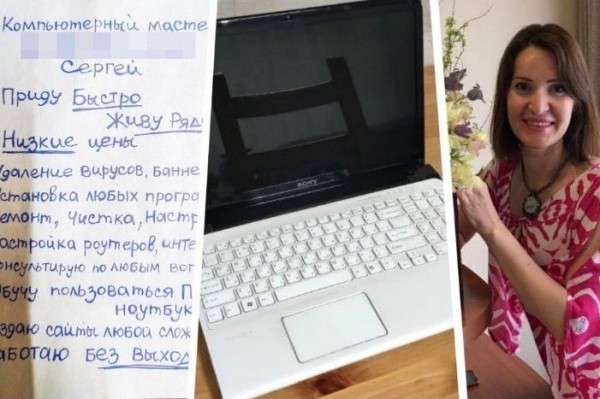 Компьютерный масте
Сергей
Приду Быстро
Живу Рядо
Низкие цены
Удаление вирусов, Банне
Установка любых програ
емонт, Чистка, Настр
астройка роутеров, инте
онсультирую по любым воп
бучу пользоваться П
ноутбук
здаю сайты любой слож
аботаю БЕЗ ВЫХОД
SONY